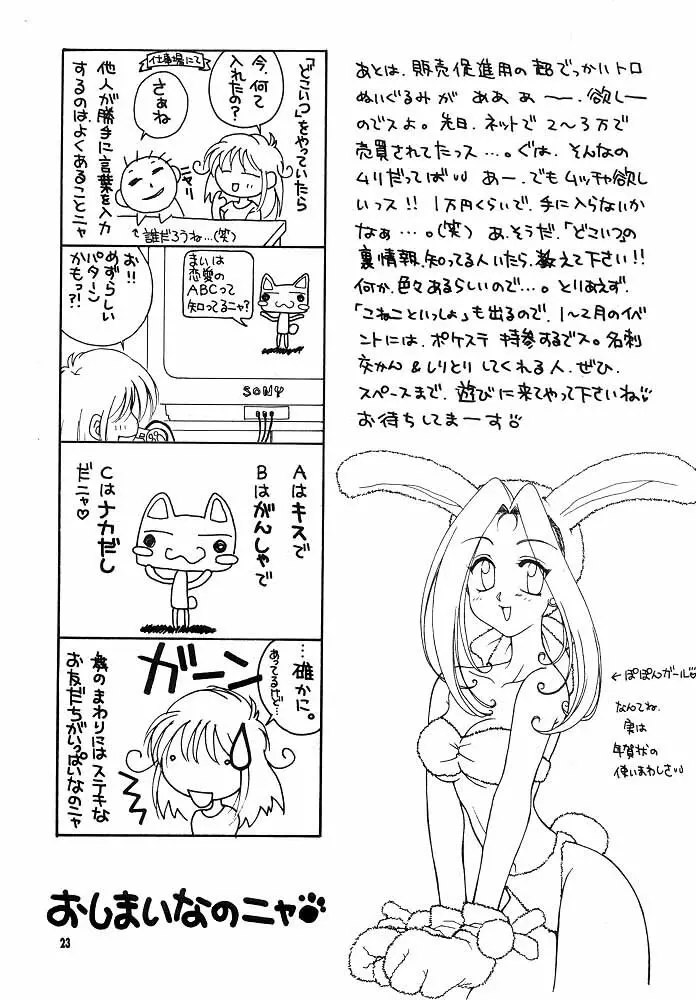 「どこいつ」をやっていたら
他人が勝手に言葉を入力
するのは、よくあることニャ
仕事場にて
今、何て
入れたの?
さぁね
ニヤリ
誰だろうね…(笑)
まいは
恋愛の
ABCって
知ってるニャ?
お!!
めずらしい
パターン
かもっ?!
SONY
Aはキスで
Bはがんしゃで
Cはナカだし
だニャ♡
…確かに。
あってるけど…
ガーン
僕のまわりにはステキな
お友だちがいっぱいなのニャ
あとは、販売促進用の超でっかいトロ
ぬいぐるみが ああ ぁ ー、欲しー
のでスよ。先日、ネットで 2〜3万で
売買されてたっス…。ぐは、そんなの
ムリだってばvv あー、でもムッチャ欲し
いっス!! 1万円くらいで、手に入らないか
なぁ…。(笑) あ、そうだ、「どこいつ」の
裏情報、知ってる人いたら、教えて下さい!!
何か、色々あるらしいので…。とりあえず、
「こねこといっしょ」も出るので、1〜2月のイベ
ントには、ポケステ 持参するでス。名刺
交かん & しりとり してくれる人、ぜひ、
スペースまで、遊びに来てやって下さいね♡
お待ちしてまーす♡
←ぽぽんガール♡
なんてね、
実は
年賀状の
使いまわしさvv
おしまいなのニャ
23